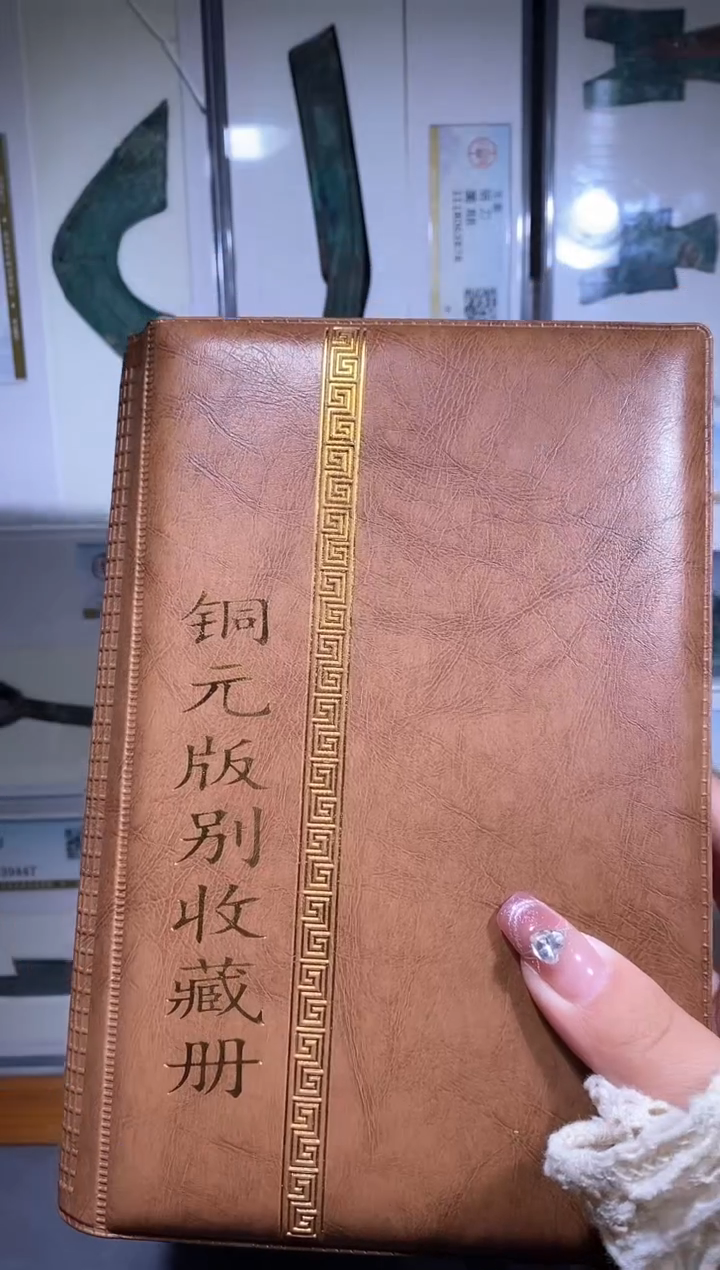 铜元版别收藏册
39447